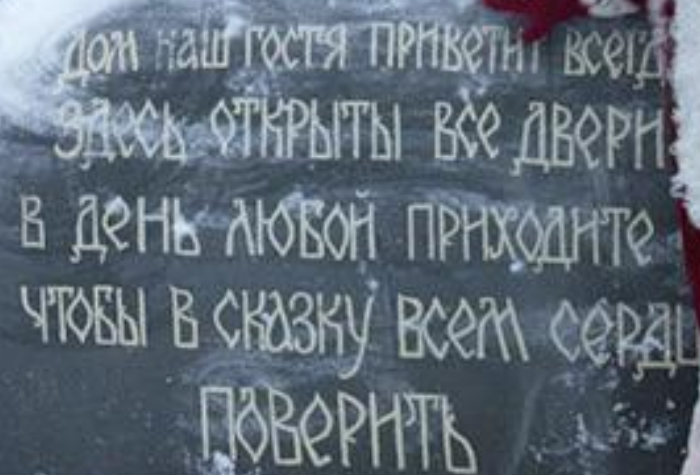 дом наш гостя приветит всегд
здесь открыты все двери
в день любой приходите
чтобы в сказку всем сердц
поверить